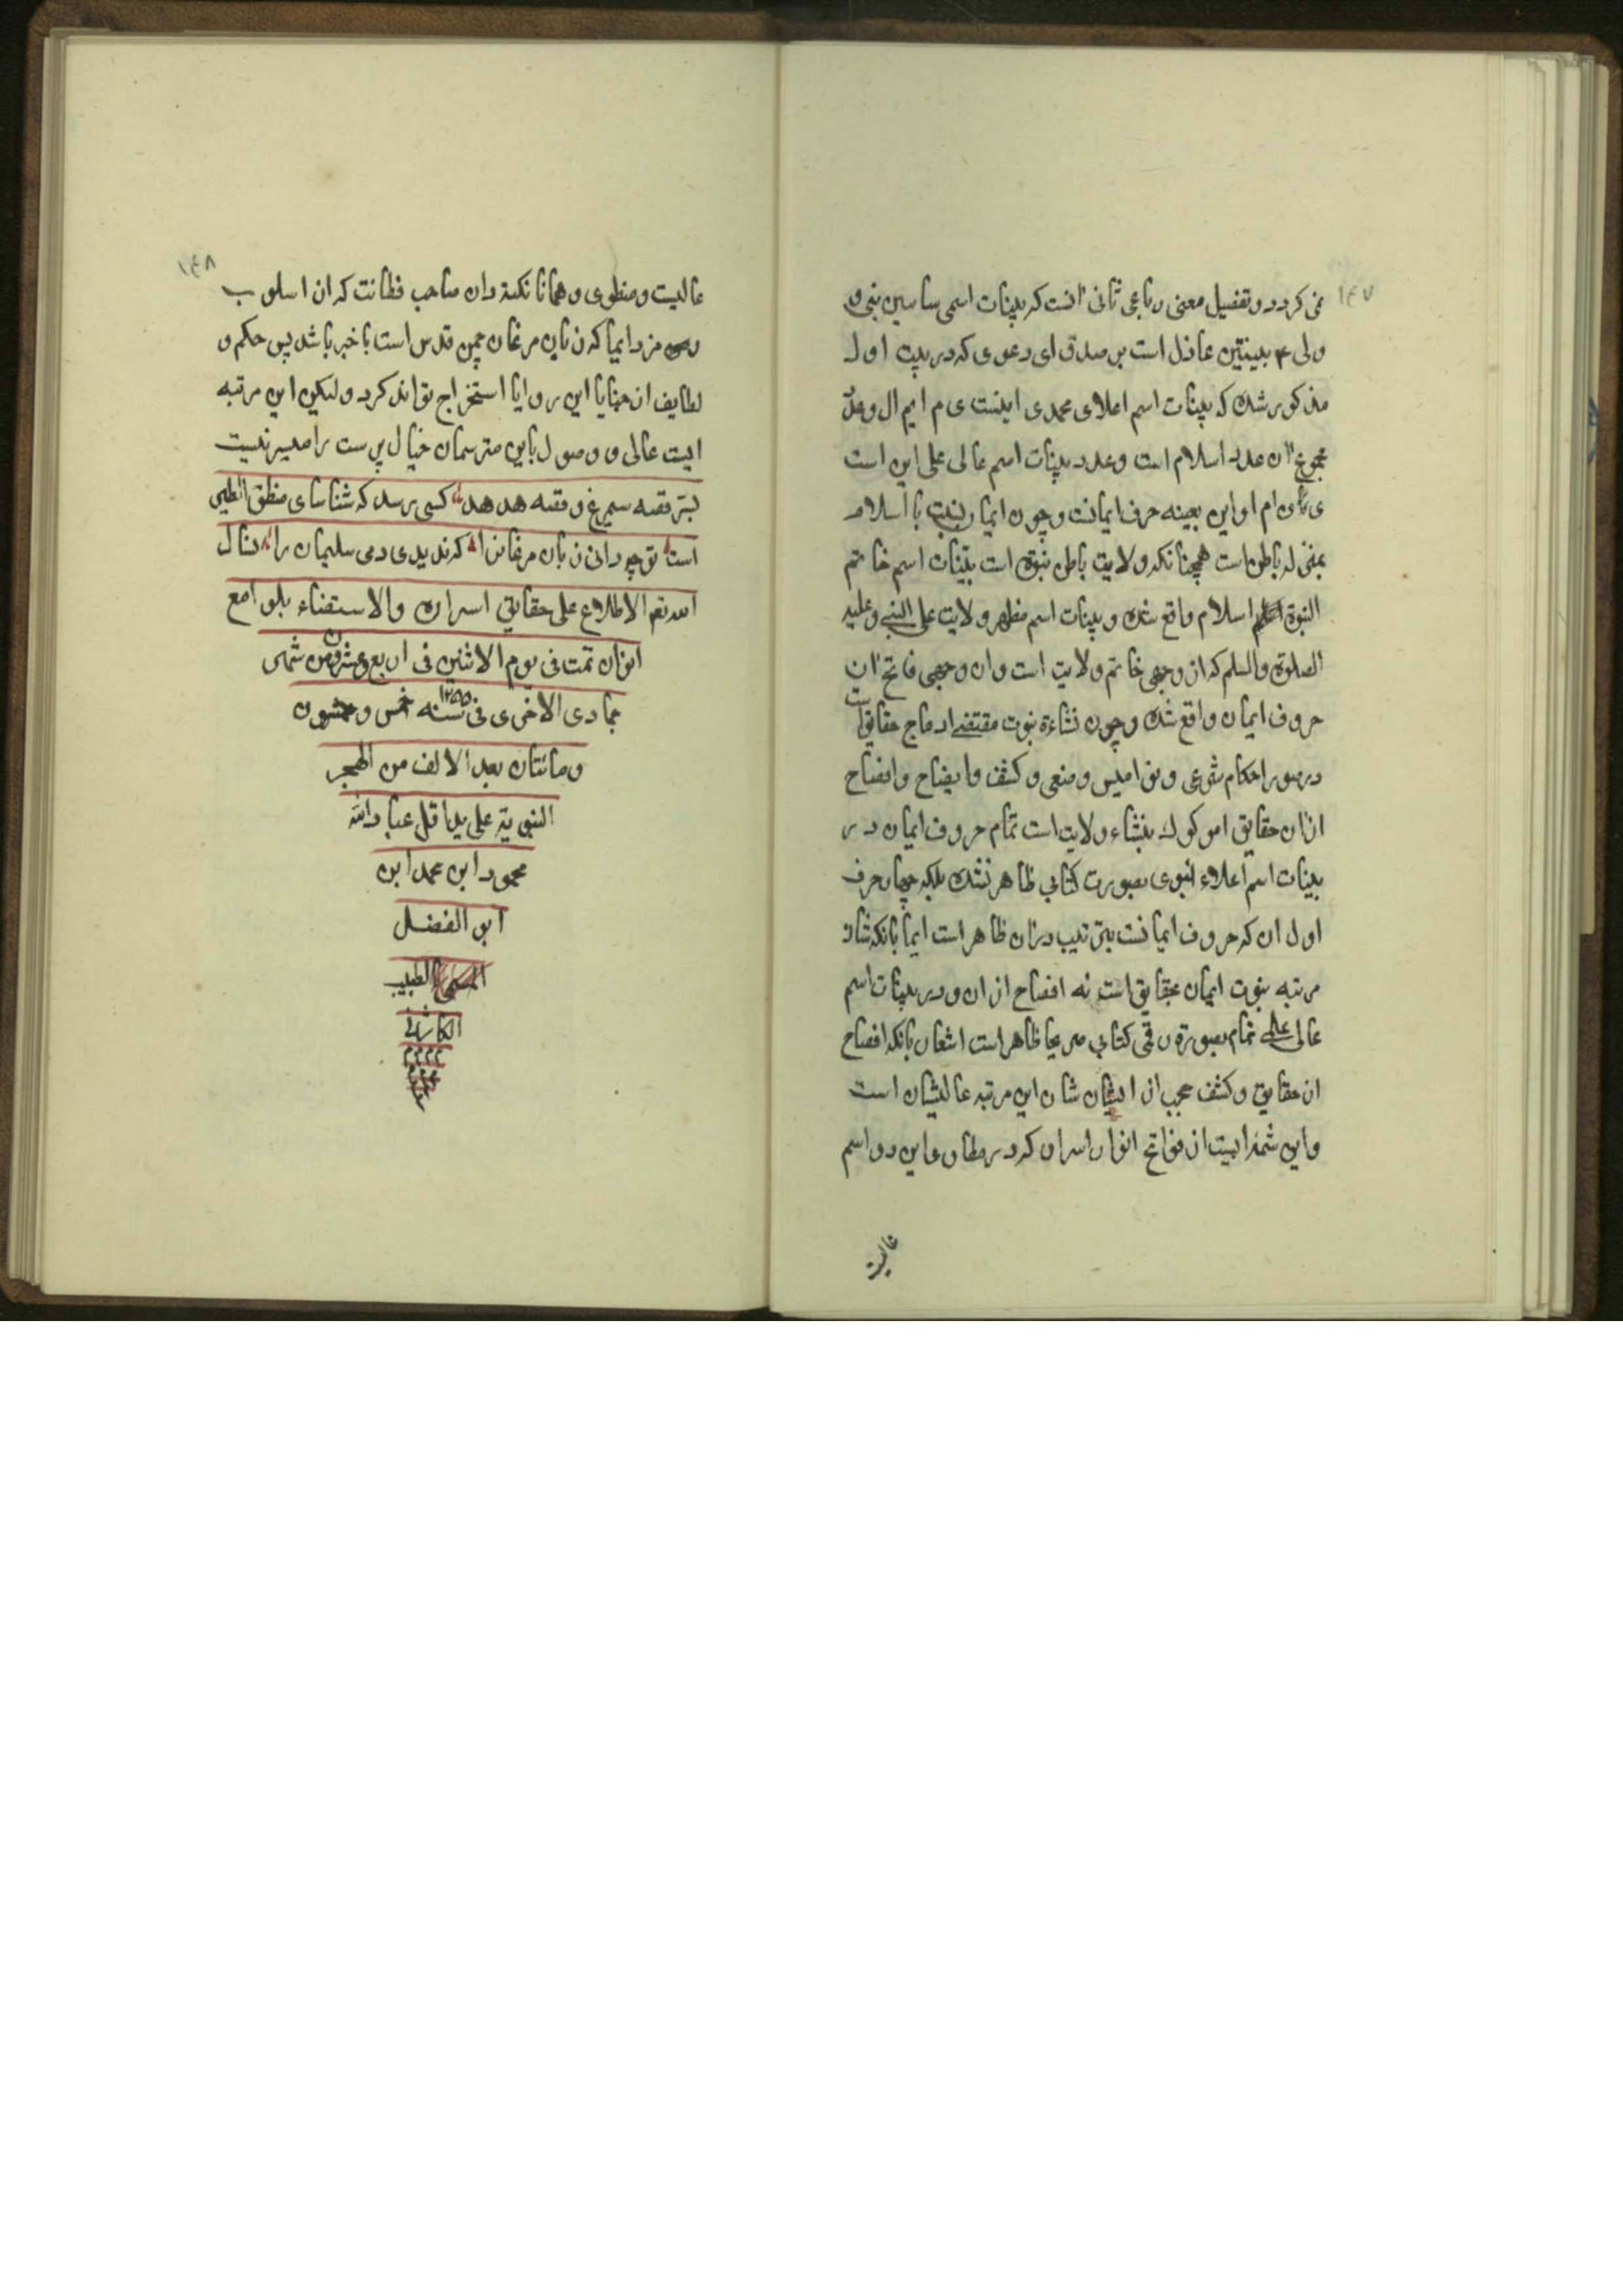 ۱۴۷
نمی کردد و تفضیل معنی رباعی ثانی آنست که بینات اسمی سامیین نبی و
ولی ۴ بینتین عادل است بر صدق ای دعوی که در بیت اول
مذکور شد که بینات اسم اعلای محمدی اینست ی م ا یم ال و عدد
مجموع آن عدد اسلام است و عدد بینات اسم عالی علی این است
ی ن ام او این بعینه حرف ایمانست و چون ایمان نسبت با اسلام
بمنزله باطن است همچنانکه ولایت باطن نبوة است بینات اسم خاتم
النبوة اسلام واقع شد و بینات اسم مظهر ولایت علی النبی و علیه
الصلوة والسلم که از وجهی خاتم ولایت است و از وجهی فاتح آن
حروف ایمان واقع شد و چون نشاءة نبوت مقتضی ادماج حقایق است
در صور احکام شرعی و نوامیس وضعی و کشف و ایضاح و افصاح
از آن حقایق موکول بنشاء ولایت است تمام حروف ایمان در
بینات اسم اعلاء نبوی بصورت کتابی ظاهر نشد بلکه چهار حرف
اول آن که حروف ایمانست بترتیب در آن ظاهر است ایما بانکه شان
مرتبه نبوت ایمان بحقایق است نه افصاح از آن و در بینات اسم
عالی علی تمام بصورة رقمی کتابی صریحا ظاهر است اشعار بانکه افصاح
از حقایق و کشف حجب از ایشان شان این مرتبه عالیشان است
و این شمه ایست از فواتح انوار اسرار که در مطاوی این دو اسم
عالیت
۱۴۸
عالیت و منطوی و همانا نکته دان صاحب فطانت که از اسلوب
رمز و ایما که زبان مرغان چمن قدس است با خبر باشد پس حکم و
لطایف از خبایا این روایا استخراج تواند کرد ولیکن این مرتبه
ایست عالی و وصول باین مترسمان خیال پرست را میسر نیست
بسر قصه سیمرغ و قصه هدهد کسی رسد که شناسای منطق الطیر
است تو چه دانی زبان مرغانرا که ندیدی دمی سلیمان را نسال
الله تعم الاطلاع علی حقایق اسراره والاستضاء بلوامع
انواره تمت فی یوم الاثنین فی اربع و عشرون من شهر
جمادی الاخری فی سنه ۱۲۵۵ خمس و خمسون
و مائتان بعد الالف من الهجر
النبویة علی ید اقل عباد الله
محمود ابن محمد ابن
ابو الفضل
المسمی الطبیب
الکاشانی